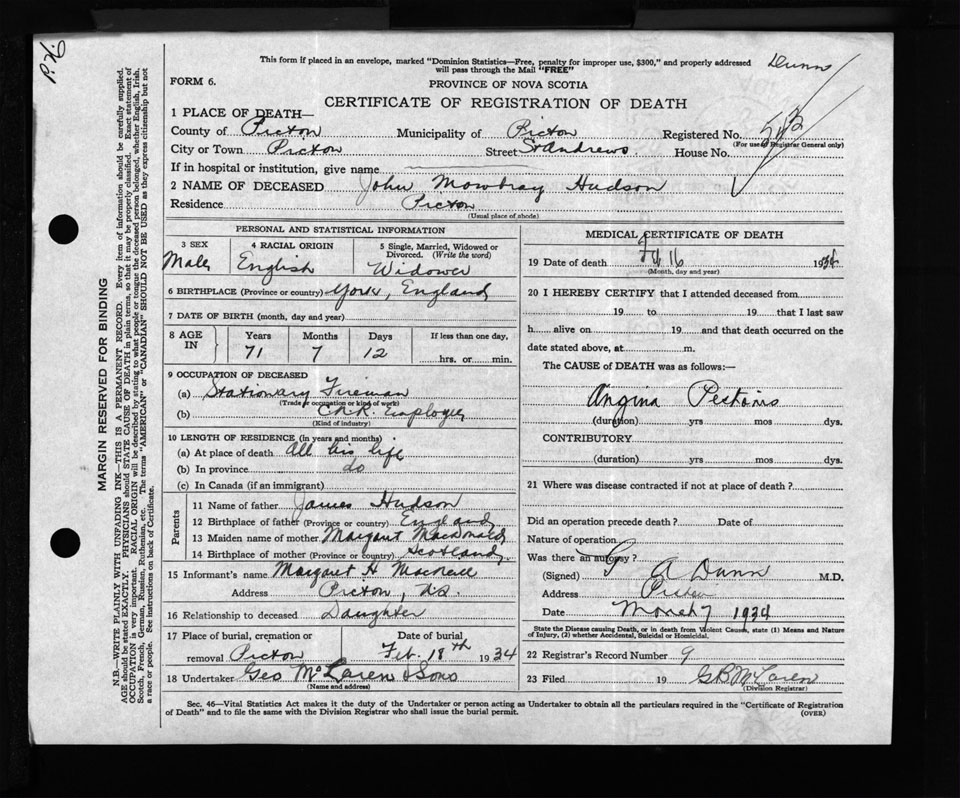 This form if placed in an envelope, marked "Dominion Statistics—Free, penalty for improper use, $300," and properly addressed
will pass through the Mail "FREE"
Dunn
FORM 6.
PROVINCE OF NOVA SCOTIA
CERTIFICATE OF REGISTRATION OF DEATH
1 PLACE OF DEATH—
County of Pictou Municipality of Pictou Registered No.
(For use of Registrar General only)
City or Town Pictou Street St Andrews. House No.
If in hospital or institution, give name
2 NAME OF DECEASED John Mowbray Hudson
Residence Pictou
(Usual place of abode)
PERSONAL AND STATISTICAL INFORMATION
3 SEX
Male
4 RACIAL ORIGIN
English
5 Single, Married, Widowed or
Divorced. (Write the word)
Widower
6 BIRTHPLACE (Province or country) York, England
7 DATE OF BIRTH (month, day and year)
8 AGE IN
Years Months Days If less than one day,
71 7 12 hrs. or min.
9 OCCUPATION OF DECEASED
(a) Stationary Fireman
(Trade, occupation or kind of work)
(b) C.N.R. Employee
(Kind of industry)
10 LENGTH OF RESIDENCE (in years and months)
(a) At place of death All his life
(b) In province do
(c) In Canada (if an immigrant)
Parents
11 Name of father James Hudson
12 Birthplace of father (Province or country) England
13 Maiden name of mother Margaret MacDonald
14 Birthplace of mother (Province or country) Scotland
15 Informant's name Margaret H
Address Pictou, N.S.
16 Relationship to deceased Daughter
17 Place of burial, cremation or
removal Pictou
Date of burial
Feb. 18th 1934
18 Undertaker Geo McLaren & Sons
(Name and address)
MEDICAL CERTIFICATE OF DEATH
19 Date of death Feb 16 1934
(Month, day and year)
20 I HEREBY CERTIFY that I attended deceased from
19 to 19 that I last saw
h alive on 19 and that death occurred on the
date stated above, at m.
The CAUSE of DEATH was as follows:—
Angina Pectoris
(duration) yrs mos dys.
CONTRIBUTORY
(duration) yrs mos dys.
21 Where was disease contracted if not at place of death?
Did an operation precede death? Date of
Nature of operation
Was there an autopsy?
(Signed) G A Dunn M.D.
Address Pictou
Date March 7 1934
State the Disease causing Death, or in death from Violent Causes, state (1) Means and Nature
of Injury, (2) whether Accidental, Suicidal or Homicidal.
22 Registrar's Record Number 9
23 Filed 19 G B McLaren
(Division Registrar)
Sec. 46—Vital Statistics Act makes it the duty of the Undertaker or person acting as Undertaker to obtain all the particulars required in the "Certificate of Registration
of Death" and to file the same with the Division Registrar who shall issue the burial permit.
(OVER)
MARGIN RESERVED FOR BINDING
N.B.—WRITE PLAINLY WITH UNFADING INK—THIS IS A PERMANENT RECORD. Every item of information should be carefully supplied.
AGE should be stated EXACTLY. PHYSICIANS should STATE CAUSE OF DEATH in plain terms, so that it may be properly classified. Exact statement of
OCCUPATION is very important. RACIAL ORIGIN will be described by stating to what people or tongue the deceased person belonged, whether English, Irish,
Scotch, French, German, Russian, Ruthenian, etc. The terms "AMERICAN" or "CANADIAN" SHOULD NOT BE USED as they express citizenship but not
a race or people. See instructions on back of Certificate.